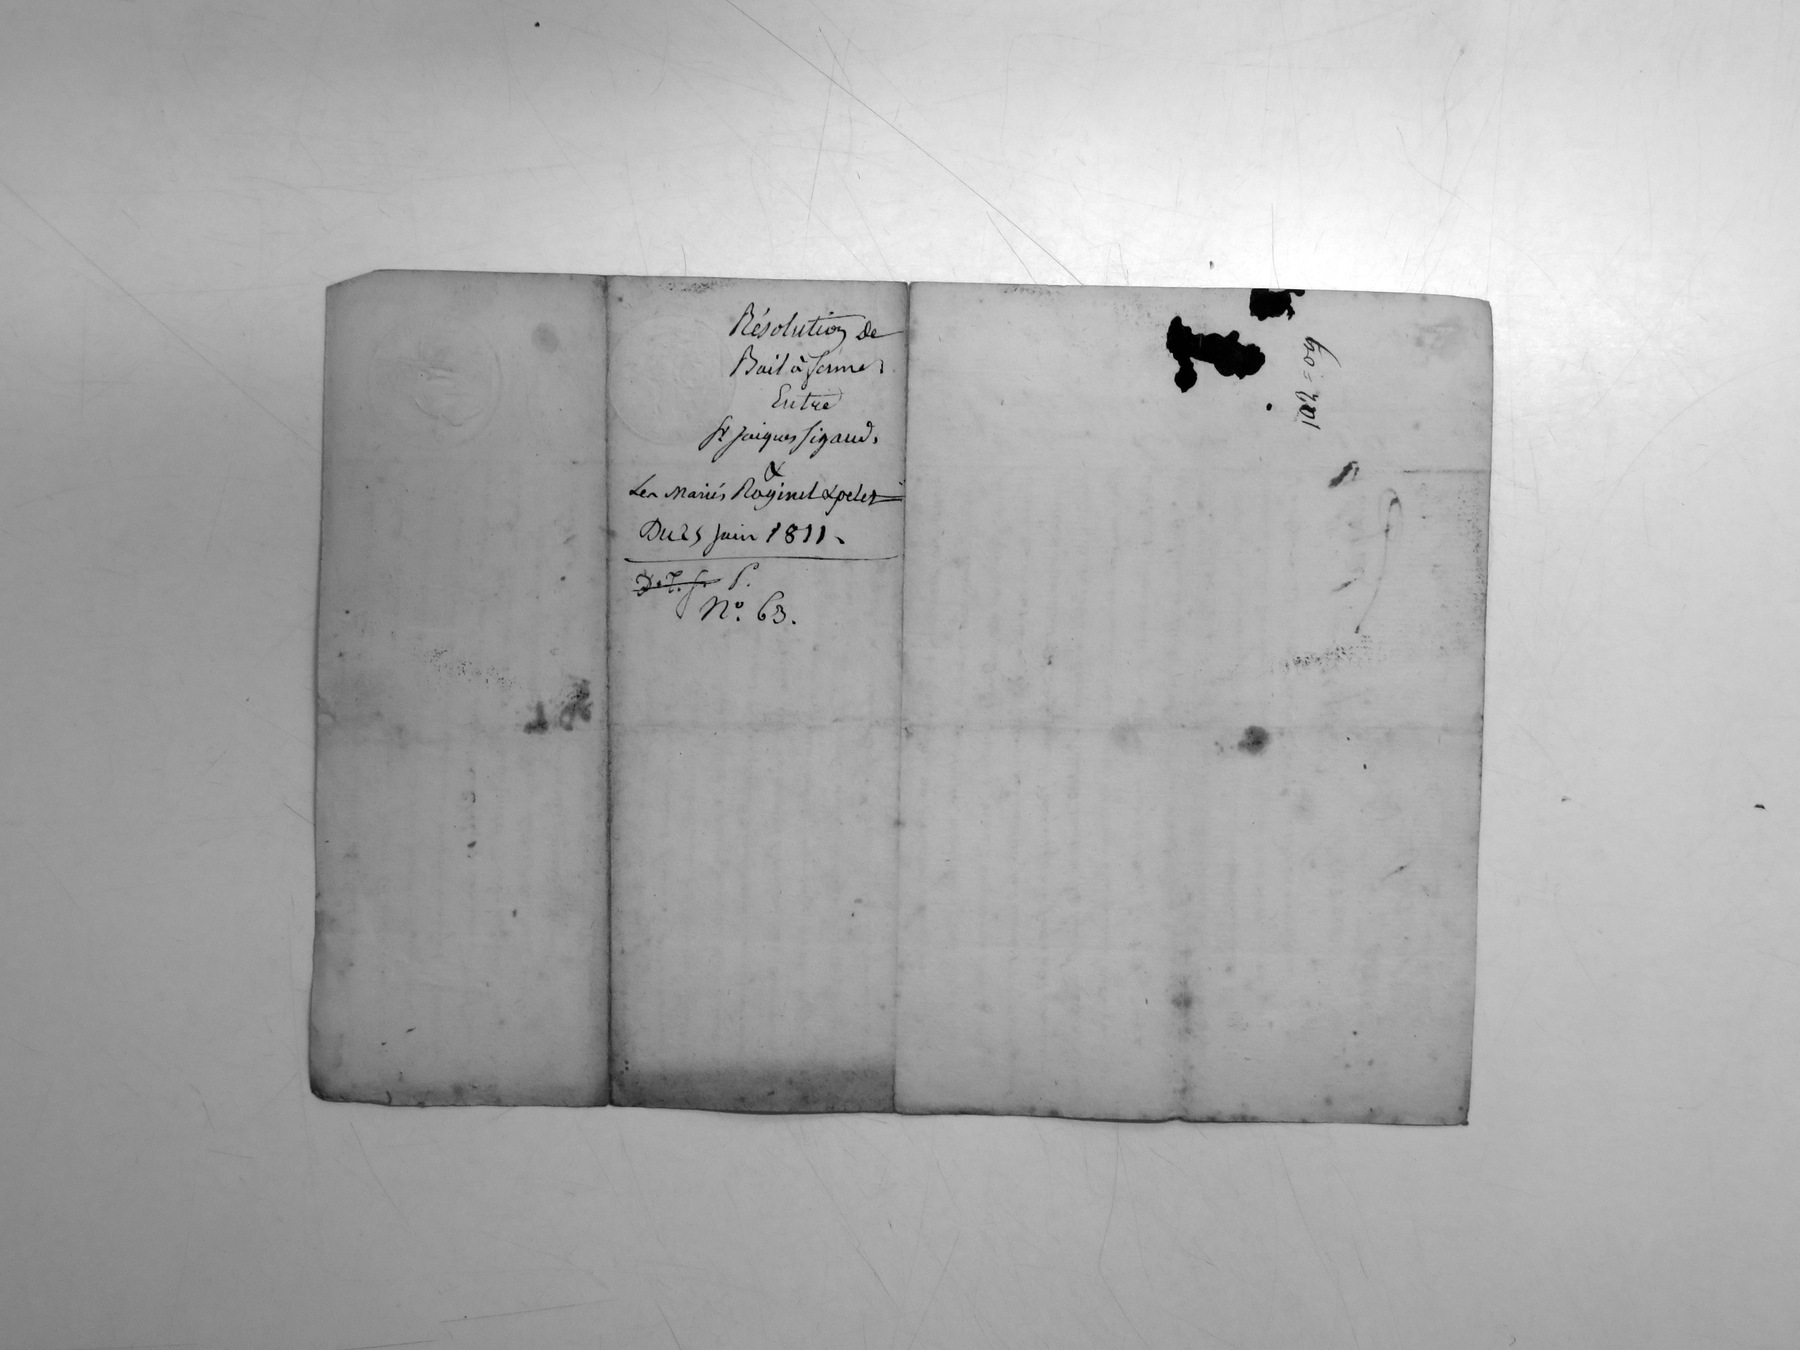 Résolution de
Bail à ferme
Entre
Sr Jaiques Sigaud,
&
Les Mariés Roginel & pelet
Du 25 Juin 1811.
P.
No. 63.